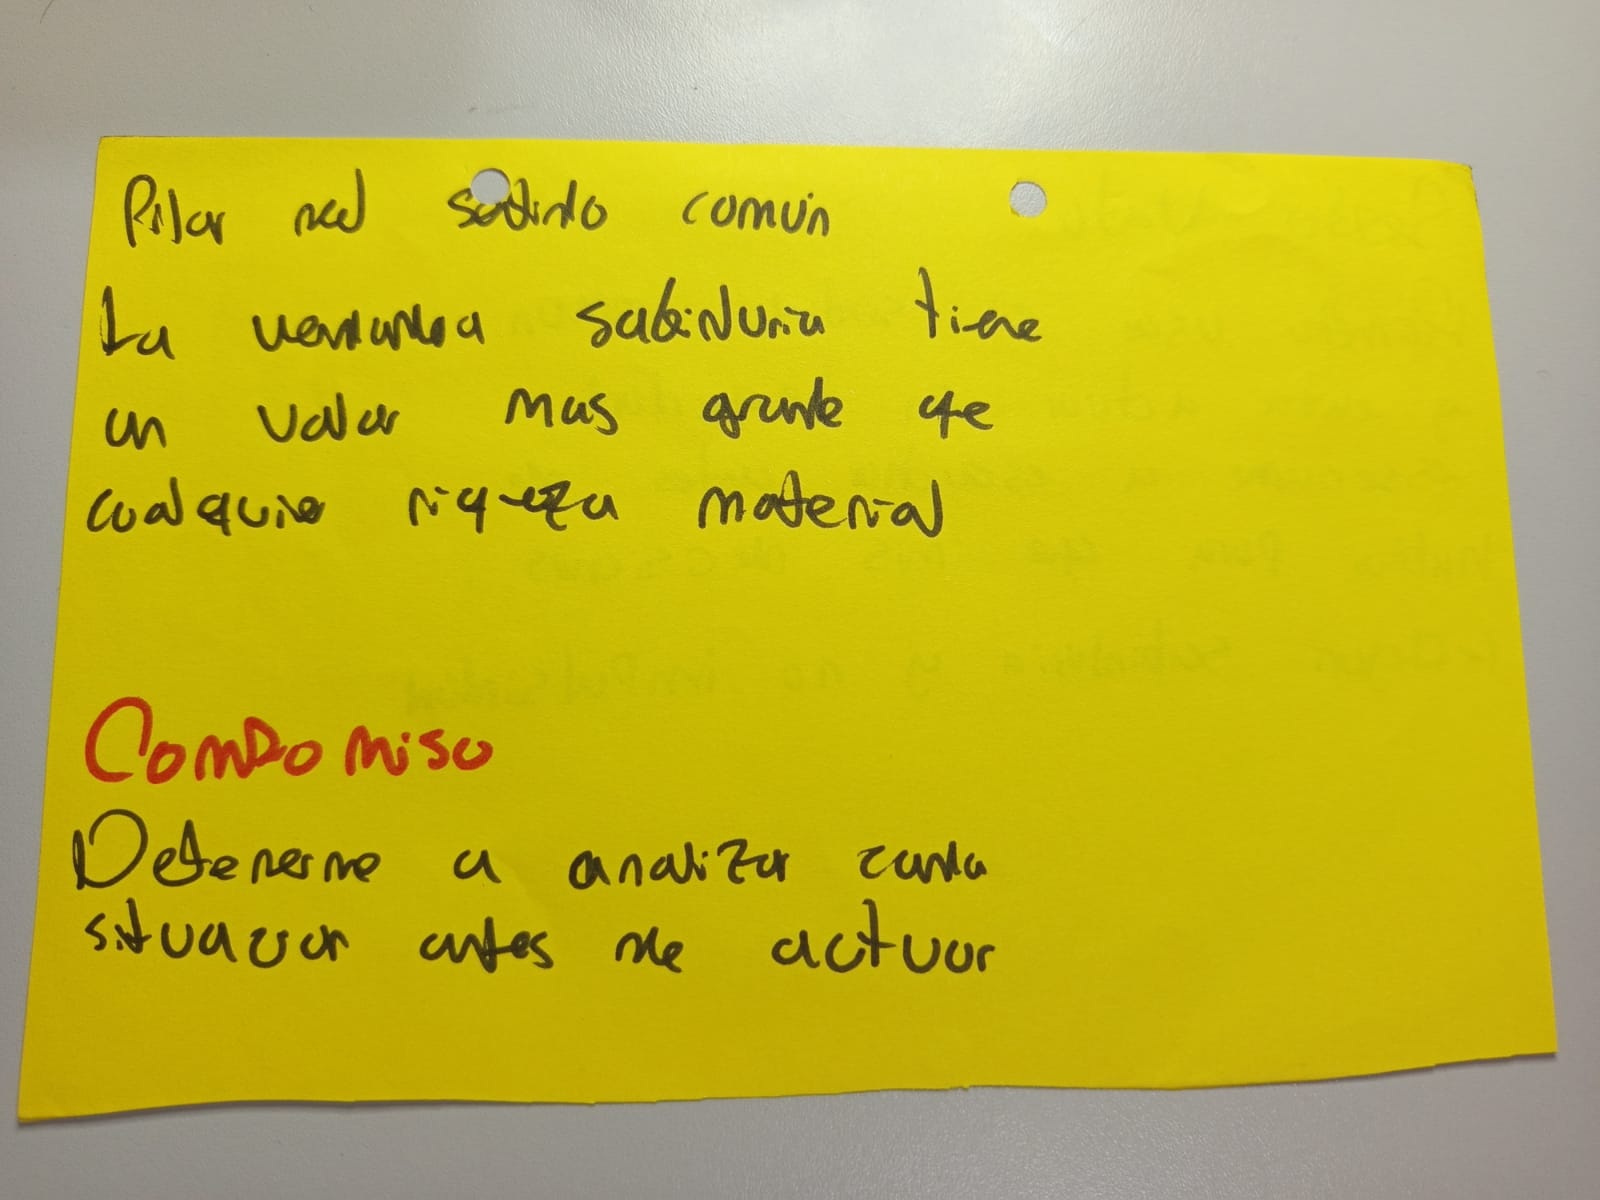 Pilar del sentido común
La verdadera sabiduria tiene
un valor mas grande que
cualquier riqueza material
Compromiso
Detenerme a analizar cada
situación antes de actuar